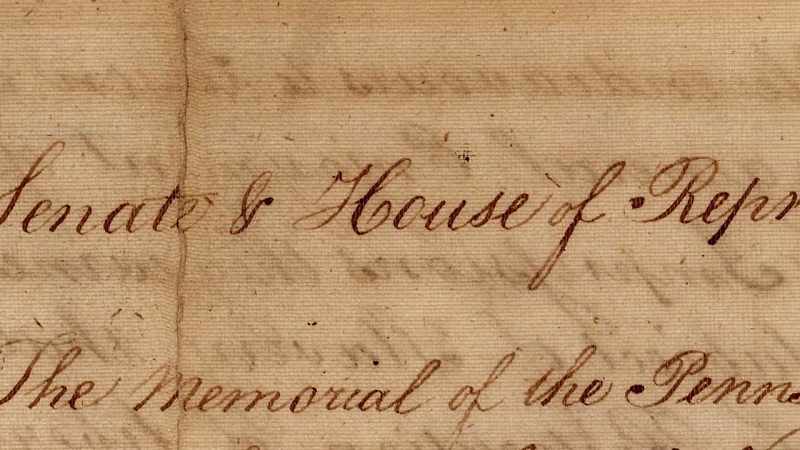 Senate & House of Repr
The Memorial of the Penns